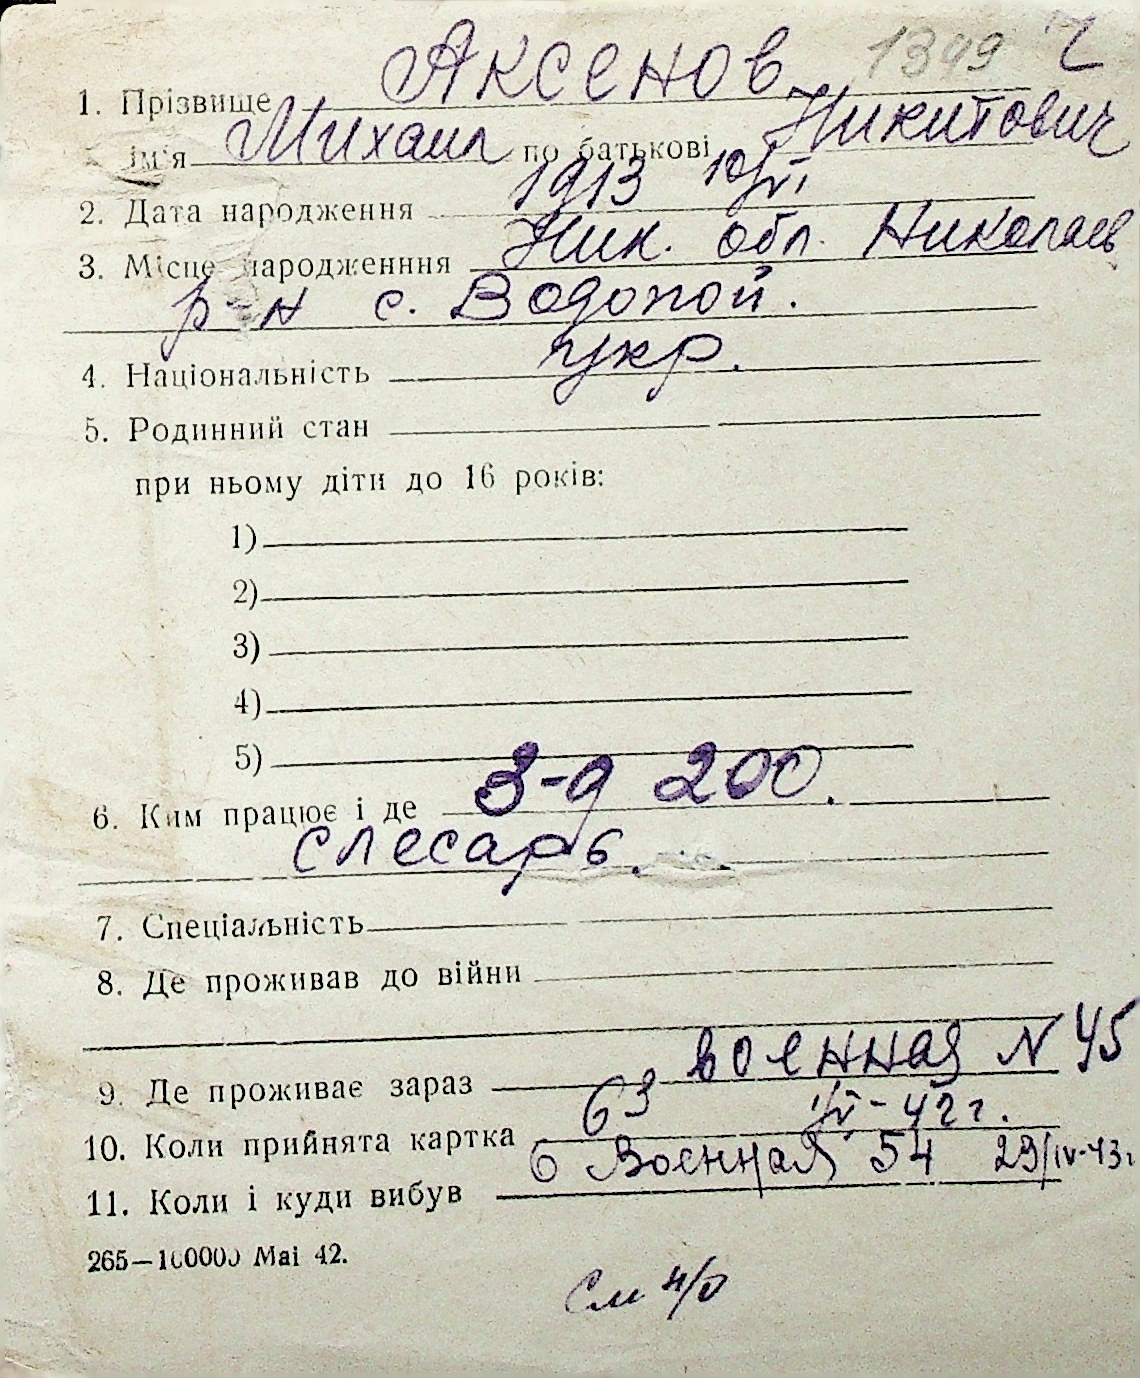 1399 Ч
1. Прізвище Аксенов
ім'я Михаил по батькові Никитович
2. Дата народження 1913 10/VI
3. Місце народженння Ник. обл. Николаев
р-н с. Водопой.
4. Національність укр.
5. Родинний стан
при ньому діти до 16 років:
1)
2)
3)
4)
5)
6. Ким працює і де З-д 200.
слесарь.
7. Спеціальність
8. Де проживав до війни
9. Де проживає зараз 6 Военная N 45
10. Коли прийнята картка 1/V-42 г.
11. Коли і куди вибув 6 Военная 54 29/IV-43г
265—100000 Mai 42.
См н/о